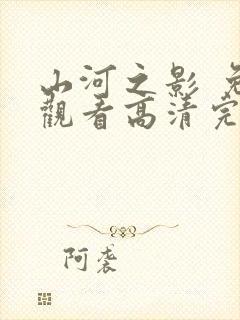 山河之影 免
觀看高清完
阿袭